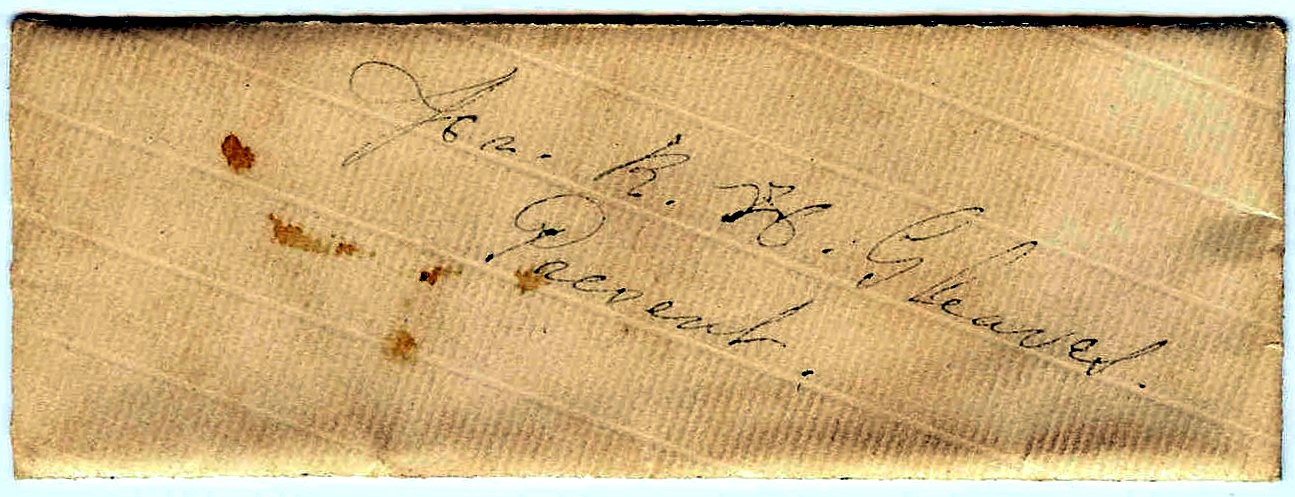 Hon. R. H. Gleaves.
Present.